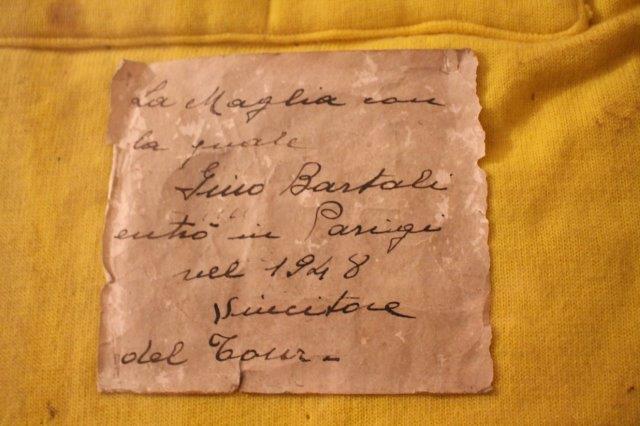 La Maglia con
la quale
Gino Bartali
entrò in Parigi
nel 1948
Vincitore
del Tour.